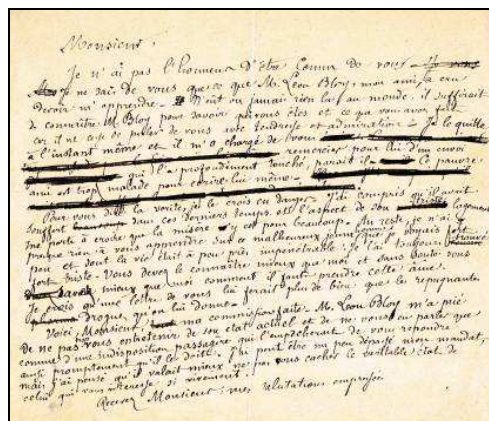 Monsieur,
Je n'ai pas l'honneur d'être connu de vous
Je ne sai de vous que ce que M. Léon Bloy, mon ami, a cru
devoir m'apprendre. lu au monde, il suffirait
de connaître M. Bloy pour savoir qui vous êtes et ce que vous avez fait
car il ne cesse de parler de vous avec tendresse et admiration. Je le quitte
à l'instant même et il m'a chargé de vous remercier pour l'envoi
qui l'a profondément touché, paraît il. Ce pauvre
ami est trop malade pour écrire lui même.
Pour vous dire la vérité, je le crois en danger. J'ai compris qu'il avait
souffert dans ces derniers temps et l'aspect de son logement
me porte à croire que la misère y est pour beaucoup. Du reste, je n'ai
presque rien à vous apprendre sur ce malheureux jeune homme que je connais fort
peu et dont la vie était à peu près impénétrable. Je l'ai toujours trouvé
fort triste. Vous devez le connaître mieux que moi et sans doute vous
savez mieux que moi comment il faut prendre cette âme.
Je crois qu'une lettre de vous lui ferait plus de bien que les répugnantes
drogues qu'on lui donne.
Voici, Monsieur, ma commission faite. M. Léon Bloy m'a prié
de ne pas vous entretenir de son état actuel et de ne vous en parler que
comme d'une indisposition passagère qui l'empêcherait de vous répondre
aussi promptement qu'il le doit. J'ai peut être un peu dépassé mon mandat,
mais j'ai pensé qu'il valait mieux ne pas vous cacher le véritable état de
celui qui vous intéresse si vivement.
Recevez Monsieur, mes salutations empressées